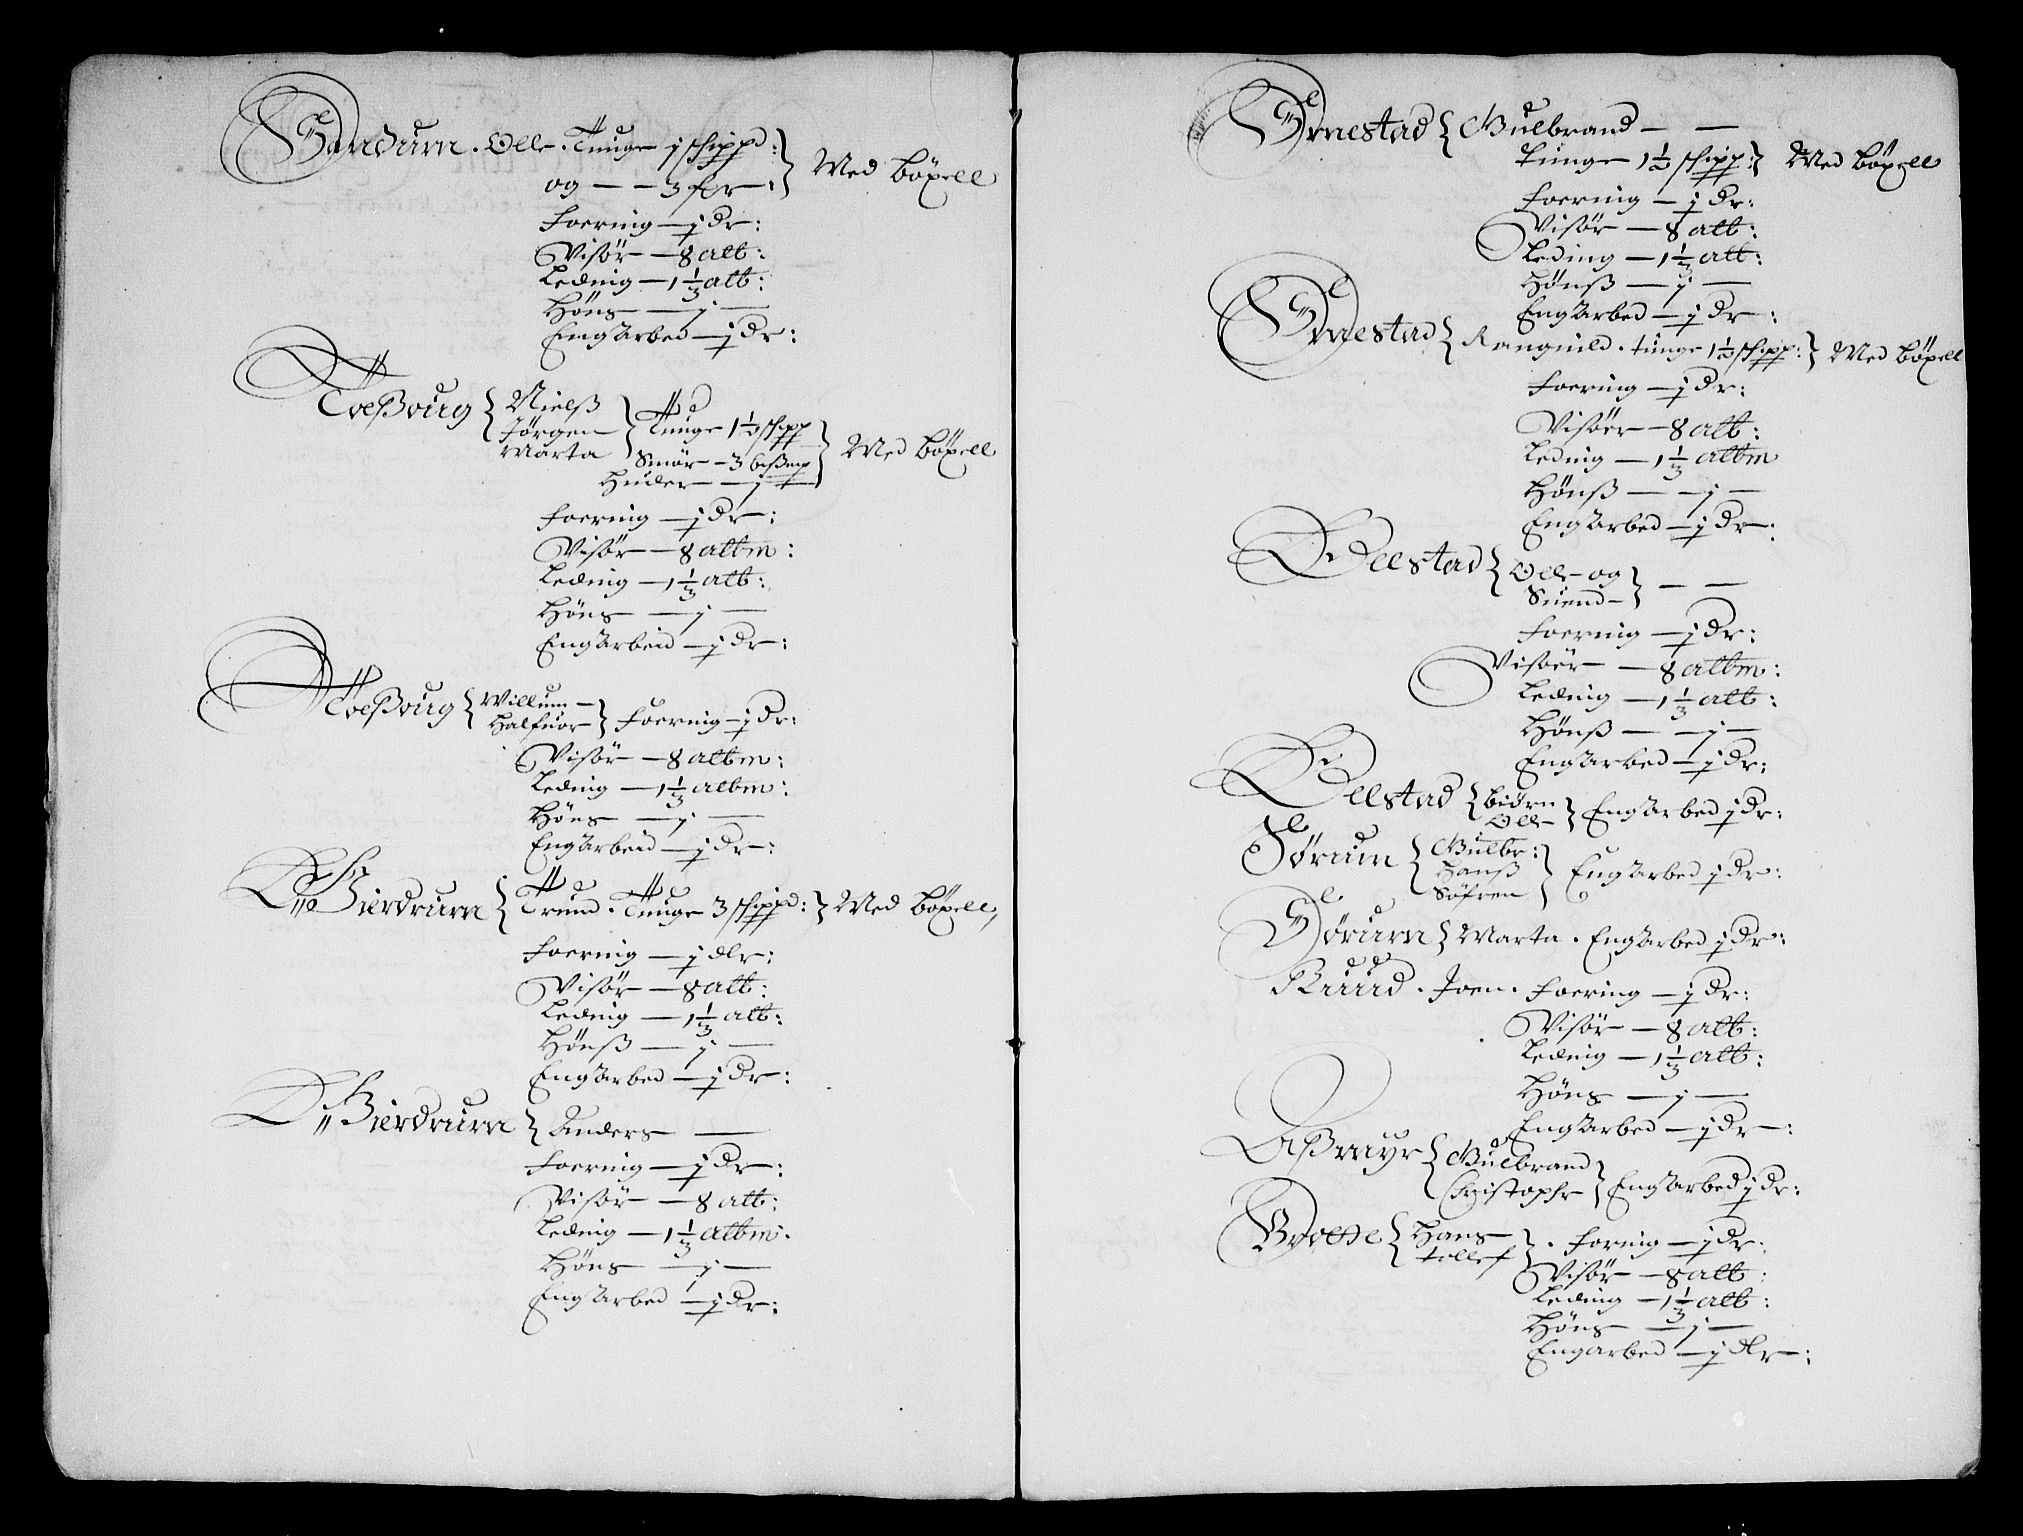 Sandum . Olle . Tunge j schippd:
og — — 3 fr: } Med bøxell
Foering — j dr:
Visör — 8 alb:
Leding — 1 1/3 alb:
Höns — j —
Engarbed — j dr:
Toeßoug { Nielß
Jørgen
Marta } Tunge 1 1/2 schipp
Smör — 3 bißmp
Huder — j — } Med bøxell
Foering — j dr:
Visör — 8 albm:
Leding — 1 1/3 alb:
Höns — j —
Engarbeid — j dr:
Toeßoug { Willum —
Halfuor } Foering — j dr:
Visör — 8 albm:
Leding — 1 1/3 albm:
Höns — j —
Engarbeid — j dr:
Gierdrum { Trund . Tunge 3 schippd: } Med bøxell,
Foering — j dlr:
Visör — 8 alb:
Leding — 1 1/3 alb:
Hönß — j —
Engarbed — j dr:
Gierdrum } Anders —
Foering — j dr:
Visör — 8 alb:
Leding — 1 1/3 albm.
Höns — j —
Engarbed — j dr:
Ørnestad { Gulbrand — —
Tunge 1 1/2 schipp: } Med bøxell
Foering — j dr:
Visör — 8 alb:
Leding — 1 1/3 alb:
Hönß — j —
Engarbed — j dr:
Ørnestad { Rangnild . tunge 1 1/2 schipp: } Med bøxell
Foering — j dr:
Visöer — 8 alb:
Leding — 1 1/3 albm
Hönß — — j —
Engarbed — j dr:
Ellestad { Olle og
Suend — } — —
Foering — j dr:
Visöer — 8 albm:
Leding — 1 1/3 alb:
Hönß — — j —
Engarbed — j dr:
Ellestad { biörn
Olle } Engarbed j dr:
Sörum { Gulbr:
Hanß
Söfren } Engarbed j dr:
Sörum } Marta . Engarbed j dr:
Ruud . Joen . Foering — j dr:
Visör — 8 alb:
Leding — 1 1/3 alb:
Höns — j —
Engarbed — j dr:
Aaßmyr { Gulbrand
Christopfr } Engarbed j dr:
Brotte { Hans —
tollef } . Foring — j dr:
Visör — 8 alb:
Leding — 1 1/3 alb:
Höns — j —
Engarbed — j dlr: